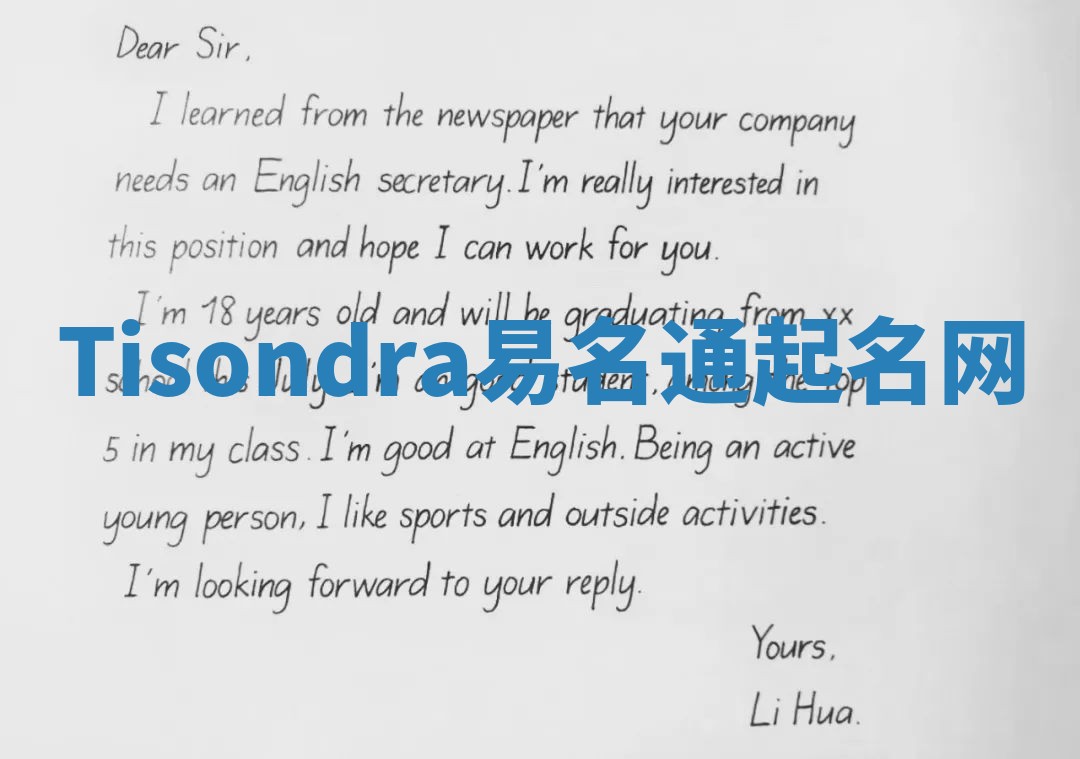 Dear Sir,
I learned from the newspaper that your company
needs an English secretary. I'm really interested in
this position and hope I can work for you.
I'm 18 years old and will be graduating from xx
Tisondra易名通起名网
school this July. I'm a good student, among the top
5 in my class. I'm good at English. Being an active
young person, I like sports and outside activities.
I'm looking forward to your reply.
Yours,
Li Hua.